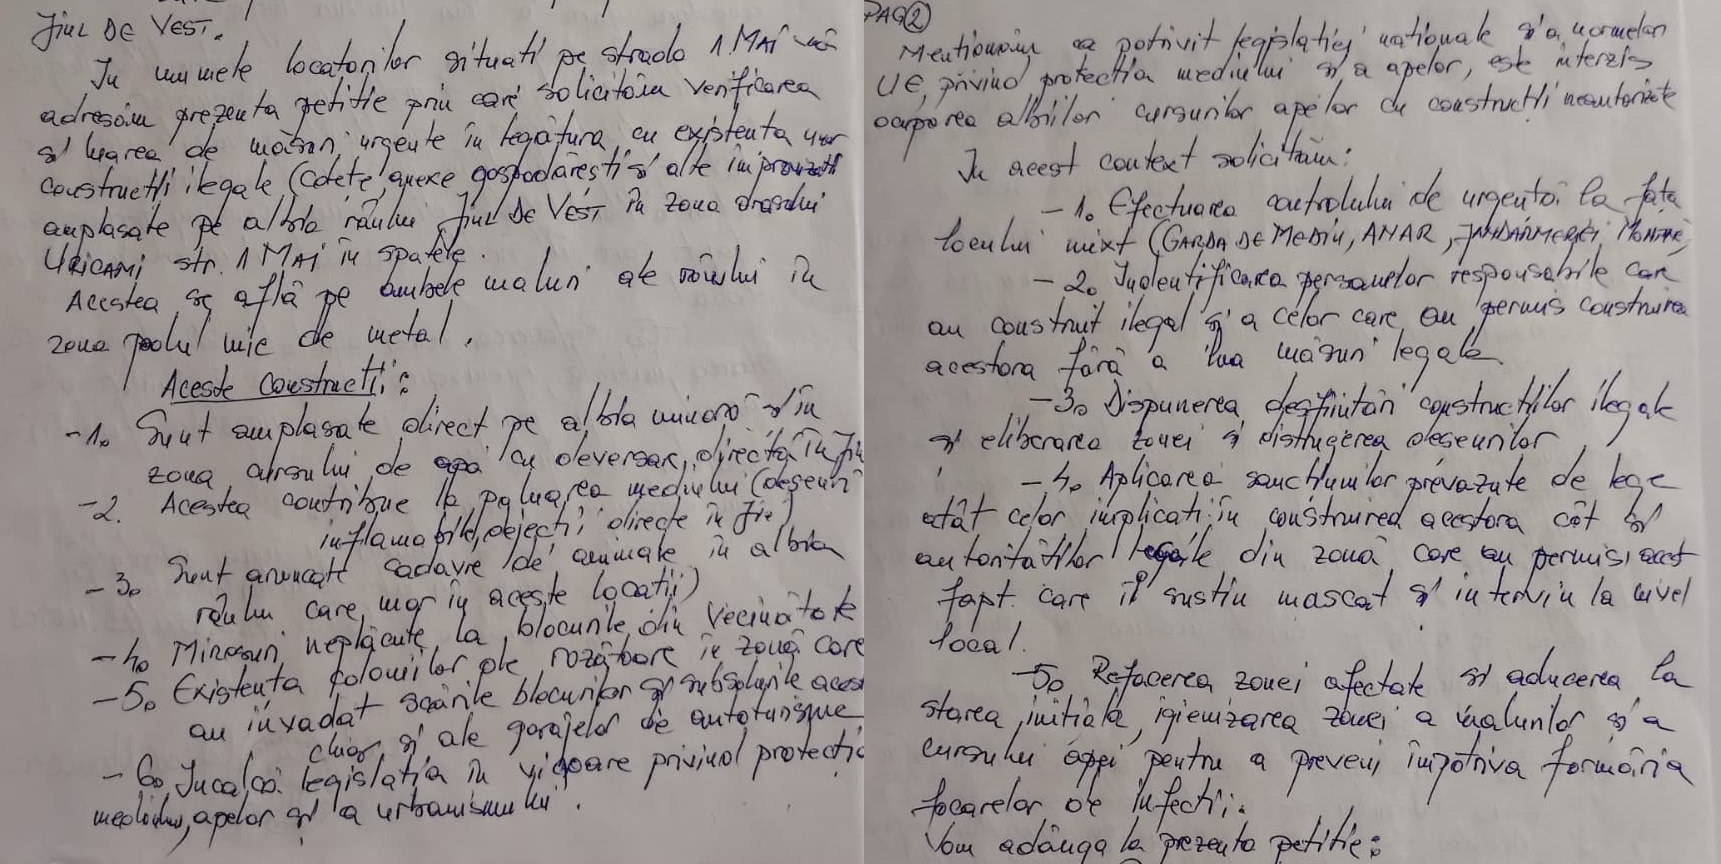 Jiul DE VEST.
In numele locatorilor situati pe strada 1 MAI vă
adresăm prezenta petitie prin care solicităm verificarea
si luarea de măsuri urgente în legătura cu existenta unor
constructii ilegale (cotete, anexe gospodărești si alte improvizatii
amplasate pe albia râului JIUL DE VEST în zona orasului
URICANI str. 1 MAI în spatele.
Acestea se află pe ambele maluri ale râului în
zona podul mic de metal.
Aceste constructii:
-1. Sunt amplasate direct pe albia minoră si în
zona cursului de apă cu deversare directă în Jiu
-2. Acestea contribue la poluarea mediului (deseuri
inflamabile, dejectii directe în Jiu)
-3. Sunt aruncate cadavre de animale în albia
râului care mor în aceste locatii)
-4. Mirosuri neplăcute la blocurile din vecinătate
-5. Existenta coloniilor de rozătoare în zonă care
au invadat scările blocurilor si subsolurile acest
chiar si ale garajelor de autoturisme
-6. Incalcă legislatia în vigoare privind protectia
mediului, apelor si a urbanismului.
PAG 2
Mentionăm ca potrivit legislatiei nationale si a normelor
UE, privind protectia mediului si a apelor, este interzis
ocuparea albiilor cursurilor apelor cu constructii neautorizate
In acest context solicităm:
-1. Efectuarea controlului de urgentă la fata
locului mixt (GARDA DE MEDIU, ANAR, JANDARMERIEI MONTANE,
-2. Indentificarea persanelor responsabile care
au construit ilegal si a celor care au permis construirea
acestora fără a lua măsuri legale
-3. Dispunerea desfiintării constructiilor ilegale
si eliberarea zonei si distrugerea deseurilor
-4. Aplicarea sanctiunilor prevazute de lege
atât celor implicati în construirea acestora cât si
autoritătilor legale din zonă care au permis acest
fapt care îl sustin mascat si intervin la nivel
local.
-5. Refacerea zonei afectate si aducerea la
starea initiala, igienizarea zonei a malurilor si a
cursului apei pentru a preveni împotriva formăria
focarelor de infectii.
Vom adăuga la prezenta petitie: